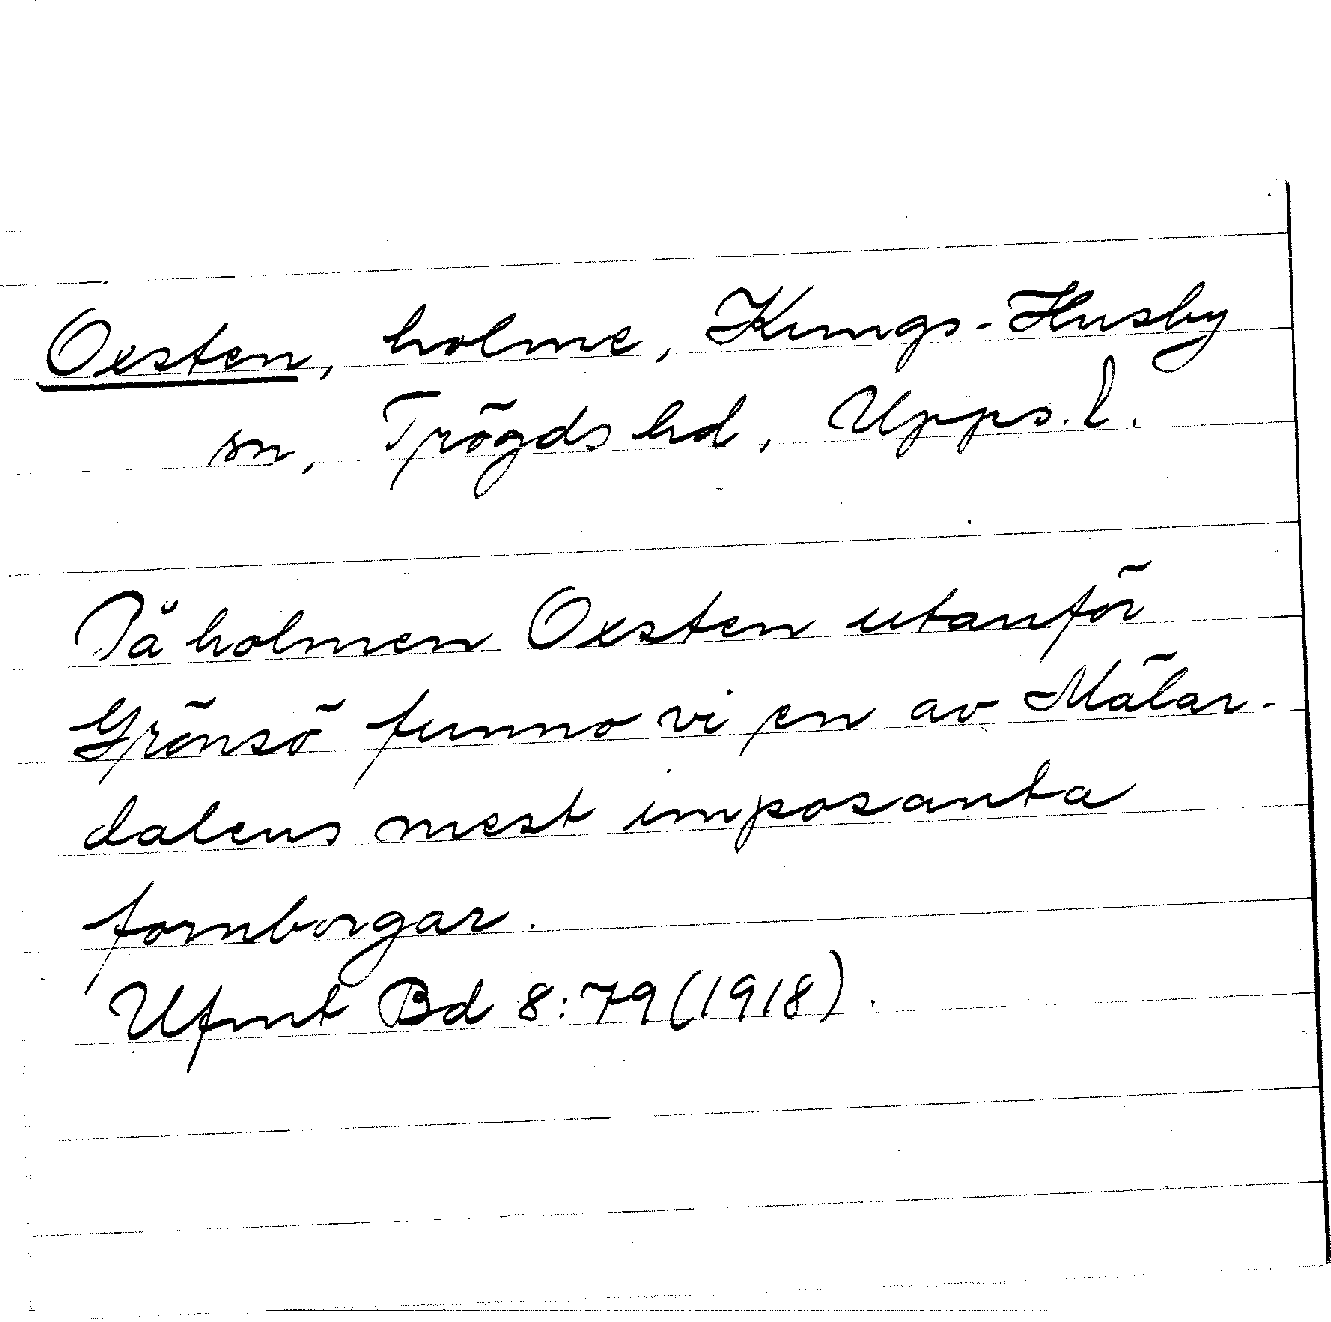 Oxsten, holme, Kungs-Husby
sn, Trögds hd, Upps. l.
På holmen Oxsten utanför
Grönsö funno vi en av Mälar-
dalens mest imposanta
fornborgar.
Ufmt Bd 8:79 (1918).